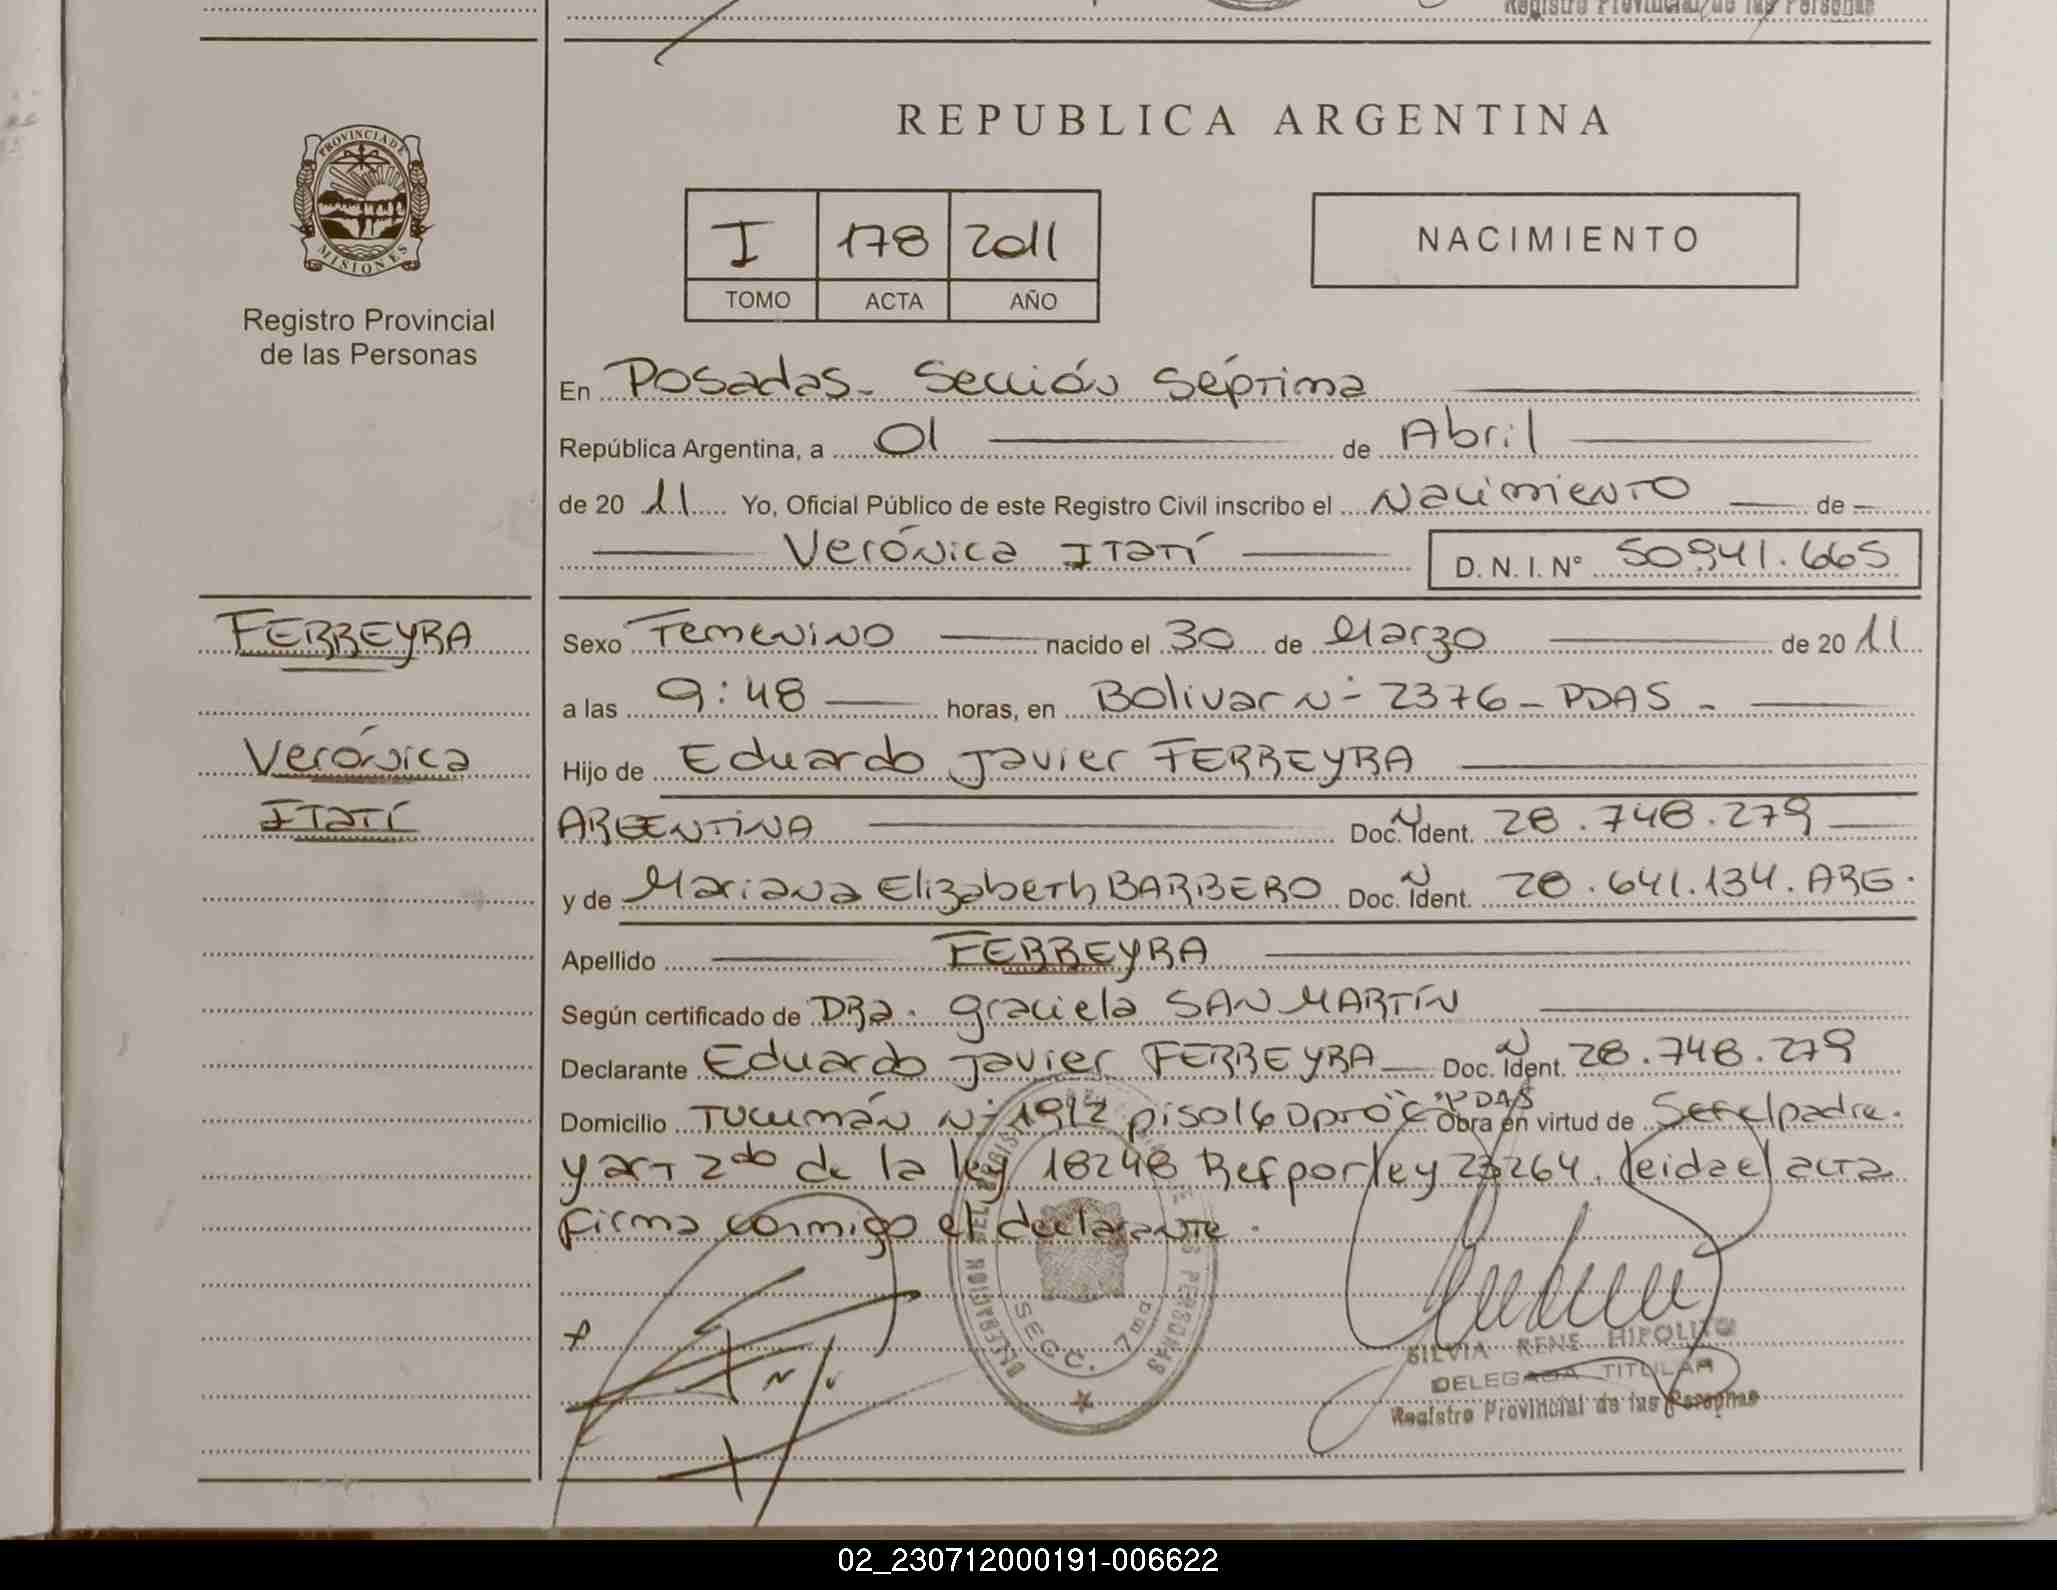 Registro Provincial de las Personas
REPUBLICA ARGENTINA
PROVINCIA DE
MISIONES
Registro Provincial
de las Personas
I 178 2011
TOMO ACTA AÑO
NACIMIENTO
En Posadas - Sección Séptima
República Argentina, a 01 de Abril
de 20 11 Yo, Oficial Público de este Registro Civil inscribo el Nacimiento de
Verónica Itatí D. N. I. N° 50.941.665
FERREYRA
Verónica
Itatí
Sexo Femenino nacido el 30 de Marzo de 20 11
a las 9:48 horas, en Bolivar N° 2376 - PDAS -
Hijo de Eduardo Javier FERREYRA
ARGENTINA Doc. N Ident. 28.748.279
y de Mariana Elizabeth BARBERO Doc. N Ident. 28.641.134. ARG.
Apellido FERREYRA
Según certificado de DRa. Graciela SAN MARTÍN
Declarante Eduardo Javier FERREYRA Doc. N Ident. 28.748.279
Domicilio Tucumán N° 1912 piso 16 Dpto "C" PDAS Obra en virtud de Ser el padre.
y art 2do de la ley 18248 Ref por ley 23264. leida el acta
firma conmigo el declarante.
DELEGACION DEL REGISTRO LAS PERSONAS
SECC. 7ma
SILVIA RENE HIPOLITO
DELEGADA TITULAR
Registro Provincial de las Personas
02_230712000191-006622